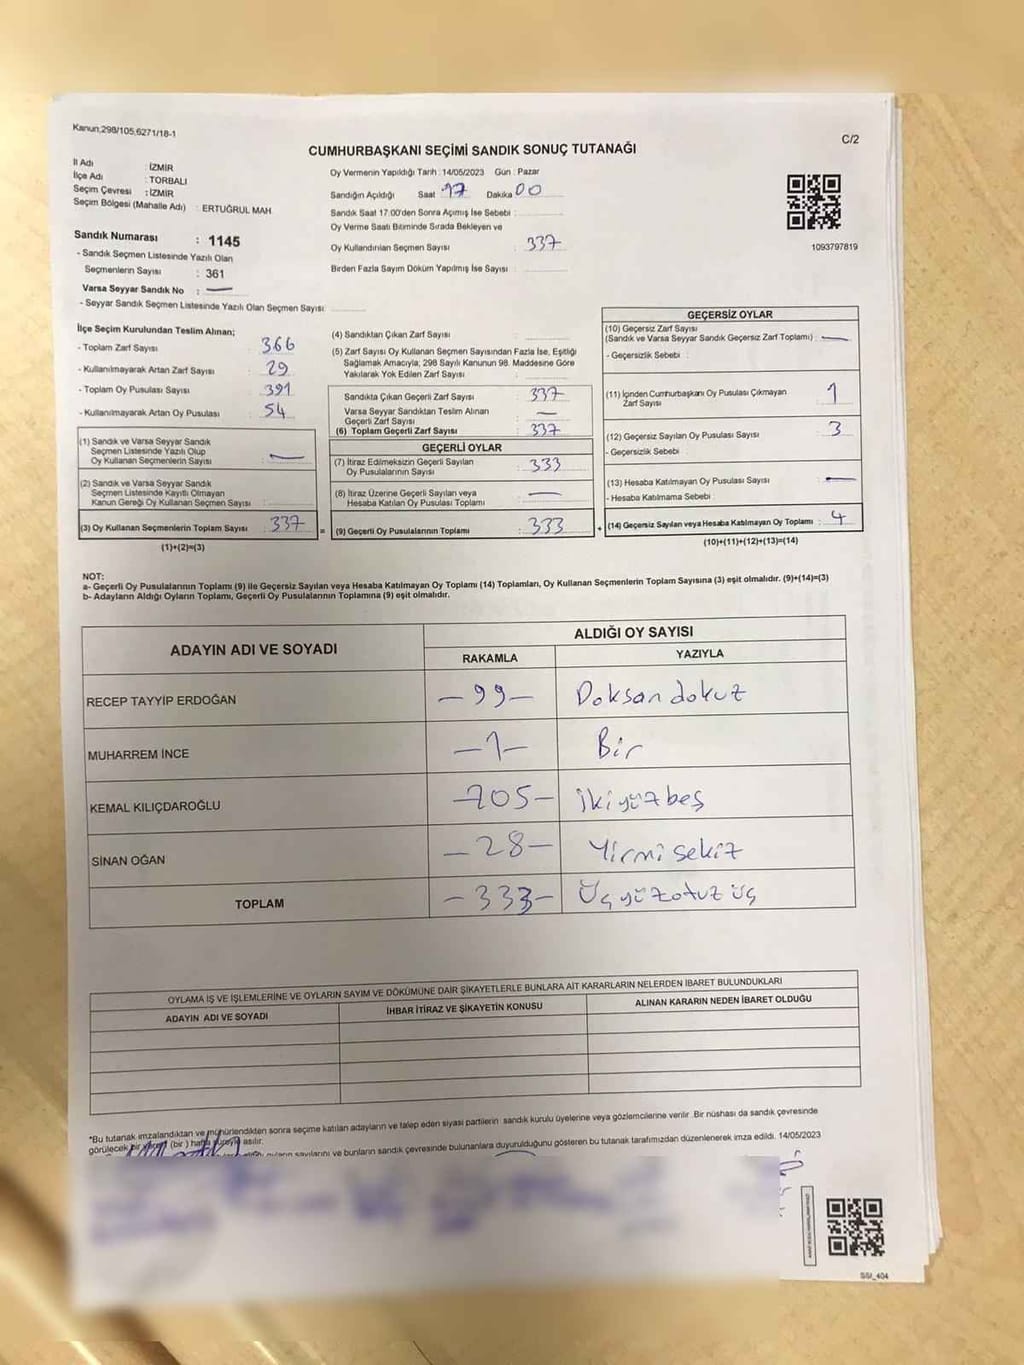 Kanun;298/105,6271/18-1
C/2
CUMHURBAŞKANI SEÇİMİ SANDIK SONUÇ TUTANAĞI
İl Adı : İZMİR
İlçe Adı : TORBALI
Seçim Çevresi : İZMİR
Seçim Bölgesi (Mahalle Adı) : ERTUĞRUL MAH
Sandık Numarası : 1145
- Sandık Seçmen Listesinde Yazılı Olan
Seçmenlerin Sayısı : 361
Varsa Seyyar Sandık No : —
- Seyyar Sandık Seçmen Listesinde Yazılı Olan Seçmen Sayısı:
Oy Vermenin Yapıldığı Tarih : 14/05/2023 Gün : Pazar
Sandığın Açıldığı Saat 17 Dakika 00
Sandık Saat 17:00'den Sonra Açımış İse Sebebi :
Oy Verme Saati Bitiminde Sırada Bekleyen ve
Oy Kullandırılan Seçmen Sayısı : 337
Birden Fazla Sayım Döküm Yapılmış İse Sayısı :
1093797819
İlçe Seçim Kurulundan Teslim Alınan;
- Toplam Zarf Sayısı : 366
- Kullanılmayarak Artan Zarf Sayısı : 29
- Toplam Oy Pusulası Sayısı : 391
- Kullanılmayarak Artan Oy Pusulası : 54
(1) Sandık ve Varsa Seyyar Sandık
Seçmen Listesinde Yazılı Olup
Oy Kullanan Seçmenlerin Sayısı : —
(2) Sandık ve Varsa Seyyar Sandık
Seçmen Listesinde Kayıtlı Olmayan
Kanun Gereği Oy Kullanan Seçmen Sayısı :
(3) Oy Kullanan Seçmenlerin Toplam Sayısı : 337
(1)+(2)=(3)
(4) Sandıktan Çıkan Zarf Sayısı :
(5) Zarf Sayısı Oy Kullanan Seçmen Sayısından Fazla İse, Eşitliği
Sağlamak Amacıyla; 298 Sayılı Kanunun 98. Maddesine Göre
Yakılarak Yok Edilen Zarf Sayısı :
Sandıkta Çıkan Geçerli Zarf Sayısı : 337
Varsa Seyyar Sandıktan Teslim Alınan
Geçerli Zarf Sayısı : —
(6) Toplam Geçerli Zarf Sayısı : 337
GEÇERLİ OYLAR
(7) İtiraz Edilmeksizin Geçerli Sayılan
Oy Pusulalarının Sayısı : 333
(8) İtiraz Üzerine Geçerli Sayılan veya
Hesaba Katılan Oy Pusulası Toplamı : —
= (9) Geçerli Oy Pusulalarının Toplamı : 333 +
GEÇERSİZ OYLAR
(10) Geçersiz Zarf Sayısı
(Sandık ve Varsa Seyyar Sandık Geçersiz Zarf Toplamı) : —
- Geçersizlik Sebebi :
(11) İçinden Cumhurbaşkanı Oy Pusulası Çıkmayan
Zarf Sayısı : 1
(12) Geçersiz Sayılan Oy Pusulası Sayısı : 3
- Geçersizlik Sebebi :
(13) Hesaba Katılmayan Oy Pusulası Sayısı : —
- Hesaba Katılmama Sebebi :
(14) Geçersiz Sayılan veya Hesaba Katılmayan Oy Toplamı : 4
(10)+(11)+(12)+(13)=(14)
NOT:
a- Geçerli Oy Pusulalarının Toplamı (9) ile Geçersiz Sayılan veya Hesaba Katılmayan Oy Toplamı (14) Toplamları, Oy Kullanan Seçmenlerin Toplam Sayısına (3) eşit olmalıdır. (9)+(14)=(3)
b- Adayların Aldığı Oyların Toplamı, Geçerli Oy Pusulalarının Toplamına (9) eşit olmalıdır.
ADAYIN ADI VE SOYADI
ALDIĞI OY SAYISI
RAKAMLA YAZIYLA
RECEP TAYYİP ERDOĞAN –99– Doksan dokuz
MUHARREM İNCE –1– Bir
KEMAL KILIÇDAROĞLU –205– ikiyüzbeş
SİNAN OĞAN –28– Yirmi sekiz
TOPLAM –333– Üçyüzotuz üç
OYLAMA İŞ VE İŞLEMLERİNE VE OYLARIN SAYIM VE DÖKÜMÜNE DAİR ŞİKAYETLERLE BUNLARA AİT KARARLARIN NELERDEN İBARET BULUNDUKLARI
ADAYIN ADI VE SOYADI İHBAR İTİRAZ VE ŞİKAYETİN KONUSU ALINAN KARARIN NEDEN İBARET OLDUĞU
*Bu tutanak imzalandıktan ve mühürlendikten sonra seçime katılan adayların ve talep eden siyasi partilerin sandık kurulu üyelerine veya gözlemcilerine verilir. Bir nüshası da sandık çevresinde
görülecek bir yere (bir) hafta süreyle asılır.
sayılarını ve bunların sandık çevresinde bulunanlara duyurulduğunu gösteren bu tutanak tarafımızdan düzenlenerek imza edildi. 14/05/2023
SSI_404